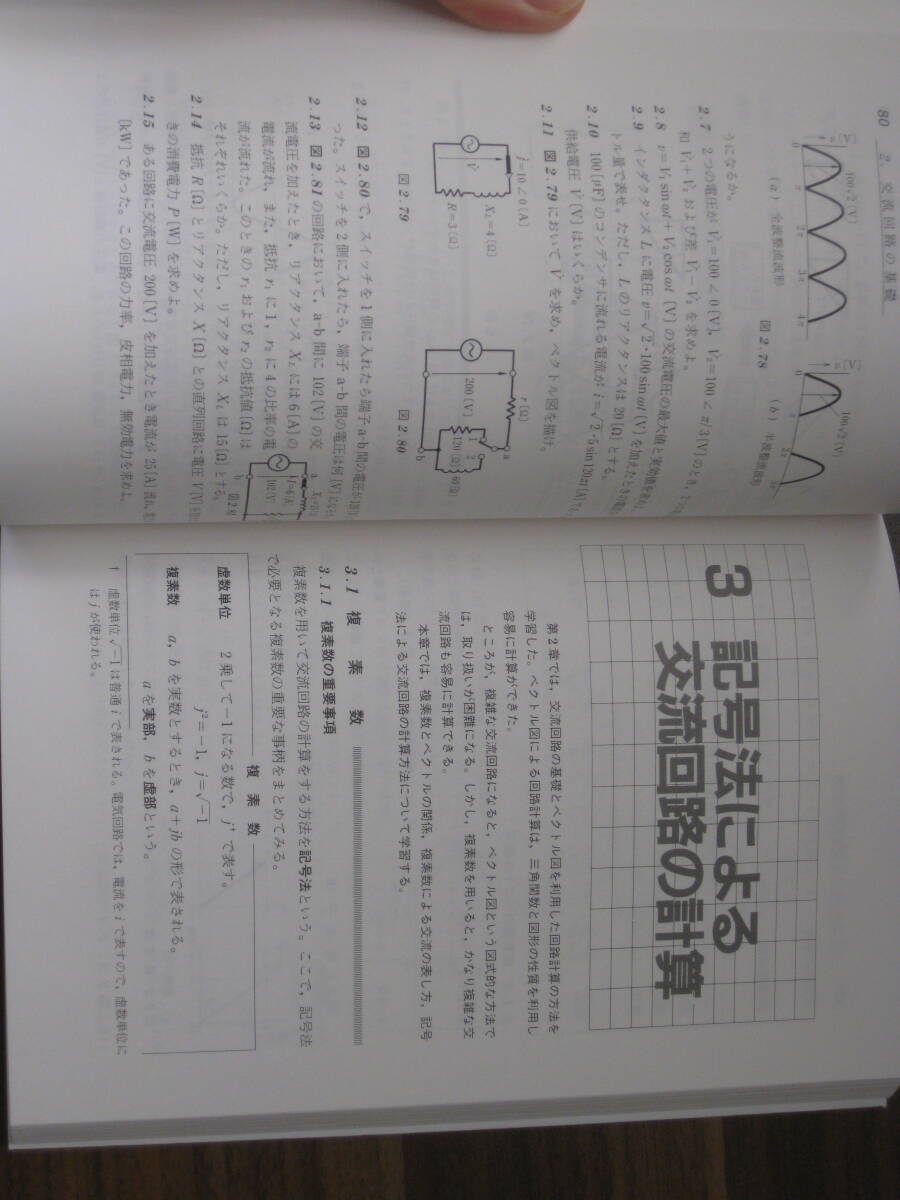 80 2. 交流回路の基礎
100√2 [V]
0 π 2π 3π 4π
(a) 全波整流波形
100√2 [V]
0 π 2π 3π
(b) 半波整流波形
図 2.78
うになるか。
2.7 2つの電圧が V̇₁=100∠0 [V], V̇₂=100∠π/3 [V] のとき,
和 V̇₁+V̇₂ および差 V̇₁−V̇₂ を求めよ。
2.8 v=V₁ sin ωt+V₂ cos ωt [V] の交流電圧の最大値と実効値を
2.9 インダクタンス L に電圧 v=√2・100 sin ωt [V] を加えたときの
トル量で表せ。ただし, L のリアクタンスは 20 [Ω] とする。
2.10 100 [μF] のコンデンサに流れる電流が i=√2・5 sin 120π t [A]
供給電圧 V̇ [V] はいくらか。
2.11 図 2.79 において V̇ を求め, ベクトル図を描け。
İ=10∠0 [A]
V̇
X_L=4 [Ω]
R=3 [Ω]
図 2.79
200 [V]
r [Ω]
1
2
120 [Ω]
60 [Ω]
a
b
図 2.80
2.12 図 2.80 で, スイッチを1側に入れたら端子 a-b 間の電圧が
った。スイッチを2側に入れたら, 端子 a-b 間の電圧は何 [V] になるか
2.13 図 2.81 の回路において, a-b 間に 102 [V] の交
流電圧を加えたとき, リアクタンス X_L には 6 [A] の
電流が流れ, また, 抵抗 r₁ に 1, r₂ に 4 の比率の電
流が流れた。このときの r₁ および r₂ の抵抗値 [Ω] は
それぞれいくらか。ただし, リアクタンス X_L は 15 [Ω] とする。
a
I=6 [A]
102 [V]
b
図 2.81
2.14 抵抗 R [Ω] とリアクタンス X [Ω] との直列回路に電圧 V [V] を
きの消費電力 P [W] を求めよ。
2.15 ある回路に交流電圧 200 [V] を加えたとき電流が 25 [A] 流れ,
[kW] であった。この回路の力率, 皮相電力, 無効電力を求めよ。
3 記号法による
交流回路の計算
第2章では, 交流回路の基礎とベクトル図を利用した回路計算の方法を
学習した。ベクトル図による回路計算は, 三角関数と図形の性質を利用し
容易に計算ができた。
ところが, 複雑な交流回路になると, ベクトル図という図式的な方法で
は, 取り扱いが困難になる。しかし, 複素数を用いると, かなり複雑な交
流回路も容易に計算できる。
本章では, 複素数とベクトルの関係, 複素数による交流の表し方, 記号
法による交流回路の計算方法について学習する。
3.1 複素数
3.1.1 複素数の重要事項
複素数を用いて交流回路の計算をする方法を記号法という。ここで, 記号法
で必要となる複素数の重要な事柄をまとめてみる。
複素数
虚数単位 2乗して −1 になる数で, j† で表す。
j²=−1, j=√−1
複素数 a, b を実数とするとき, a+jb の形で表される。
a を実部, b を虚部という。
† 虚数単位 √−1 は普通 i で表される。電気回路では, 電流を i で表すので, 虚数単位に
は j が使われる。